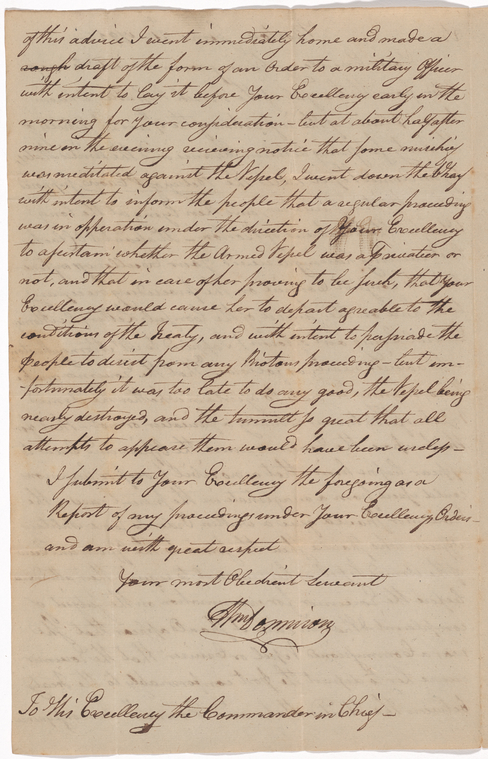 of this advice I went immediately home and made a
rough draft of the form of an Order to a military Officer
with intent to lay it before Your Excellency early in the
morning for Your consideration – but at about half after
nine in the evening recieving notice that some mischief
was meditated against the Vessel, I went down the Bay
with intent to inform the people that a regular proceeding
was in opperation under the direction of Your Excellency
to asertain whether the Armed Vessel was a Privatier or
not, and that in case of her proving to be such, that Your
Excellency would cause her to depart agreable to the
conditions of the Treaty, and with intent to perssuade the
people to desist from any Riotous proceeding – but un-
fortunately it was too late to do any good, the Vessel being
nearly destroyed, and the tumult so great that all
attempts to appease them would have been useless –
I submit to Your Excellency the foregoing as a
Report of my proceedings under Your Excellency Orders –
and am with great respect
Your most Obedient Servant
To His Excellency the Commander in Chief –